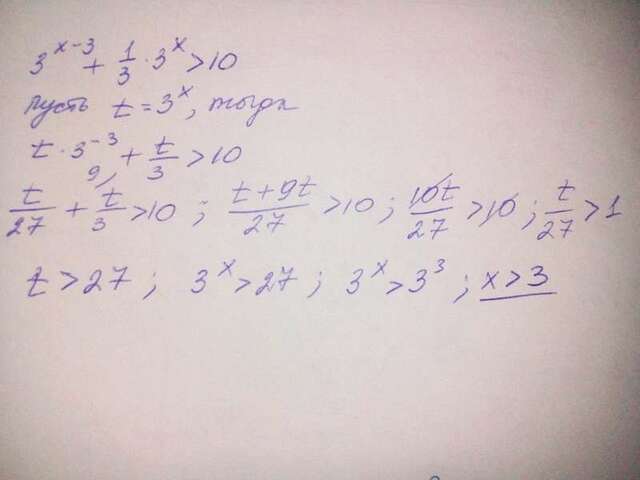 3^{x-3} + \frac{1}{3} \cdot 3^x > 10
пусть t = 3^x, тогда
t \cdot 3^{-3} + \frac{t}{3} > 10
\frac{t}{27} + \frac{t}{3}^{9} > 10 ; \frac{t+9t}{27} > 10 ; \frac{10t}{27} > 10 ; \frac{t}{27} > 1
t > 27 ; 3^x > 27 ; 3^x > 3^3 ; x > 3